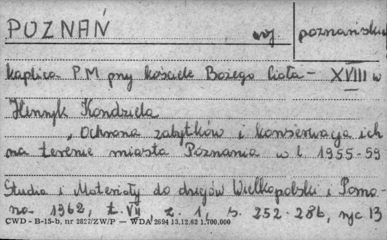 POZNAŃ woj poznańskie
kaplica P.M przy kościele Bożego Ciała - XVIII w
Henryk Kondziela
"Ochrona zabytków i konserwacja ich
na terenie miasta Poznania w l 1955-59
Studia i Materiały do dziejów Wielkopolski i Pomo-
rza 1962, t. VII z. 1, s. 252-286, ryc 13
CWD - B-15-b, nr 2827/ZW/P — WDA 2694 13.12.62 1.700.000